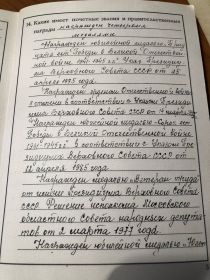 14. Какие имеет почетные звания и правительственные
награды награжден четырьмя
медалями
Награжден юбилейной медалью
Победы в Великой Отечественной
войне 1941-1945 гг. Указ Прези-
диума Верховного Совета СССР от 25
апреля 1975 года.
Награжден орденом Отечественной войны
степени в соответствии с Указом Президи-
ума Верховного Совета СССР от 11 марта
Награжден юбилейной медалью Сорок
Победы в Великой Отечественной войне
1941-1945 гг. в соответствии с Указом Пре-
зидиума Верховного Совета СССР от
12 апреля 1985 года.
Награжден медалью Ветеран труда
от имени президиума Верховного Совета
СССР Решение исполкома Московского
областного Совета народных депута-
тов от 2 марта 1977 года.
Награжден юбилейной медалью